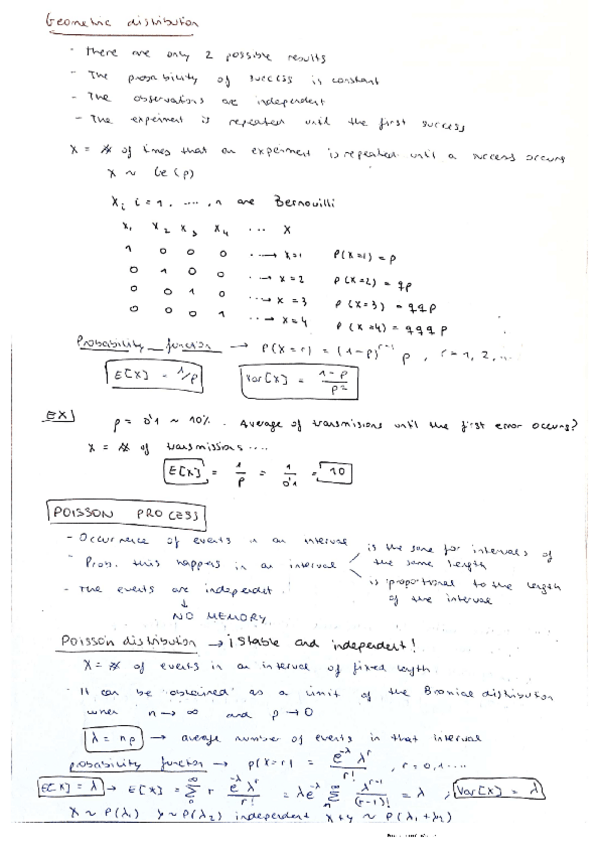 Geometric distribution
- There are only 2 possible results
- The probability of success is constant
- The observations are independent
- The experiment is repeated until the first success
X = # of times that an experiment is repeated until a success occurs
X ~ Ge(p)
Xi i=1, ...., n are Bernouilli
X1 X2 X3 X4 ... X
1 0 0 0 ...→ X=1 P(X=1) = p
0 1 0 0 ...→ X=2 P(X=2) = qp
0 0 1 0 ...→ X=3 P(X=3) = qqp
0 0 0 1 ...→ X=4 P(X=4) = qqqp
Probability function → P(X=r) = (1-p)^(r-1) p , r=1, 2, ...
E[X] = 1/p Var[X] = (1-p)/p²
EX] p = 0'1 ~ 10% . Average of transmisions until the first error occurs?
X = # of transmissions ....
E[X] = 1/p = 1/0'1 = 10
POISSON PROCESS
- Occurrence of events in an interval
- Prob. this happens in an interval is the same for intervals of the same length
is proportional to the length of the interval
- The events are independent.
↓
NO MEMORY
Poisson distribution → ¡Stable and independent!
X = # of events in an interval of fixed length.
- It can be obtained as a limit of the Binomial distribution
when n → ∞ and p → 0
λ = np → average number of events in that interval
probability function → P(X=r) = e^-λ λ^r / r! , r = 0,1....
E[X] = λ → E[X] = Σ r e^-λ λ^r / r! = λe^-λ Σ λ^(r-1) / (r-1)! = λ ; Var[X] = λ
X ~ P(λ1) Y ~ P(λ2) independent X+Y ~ P(λ1+λ2)